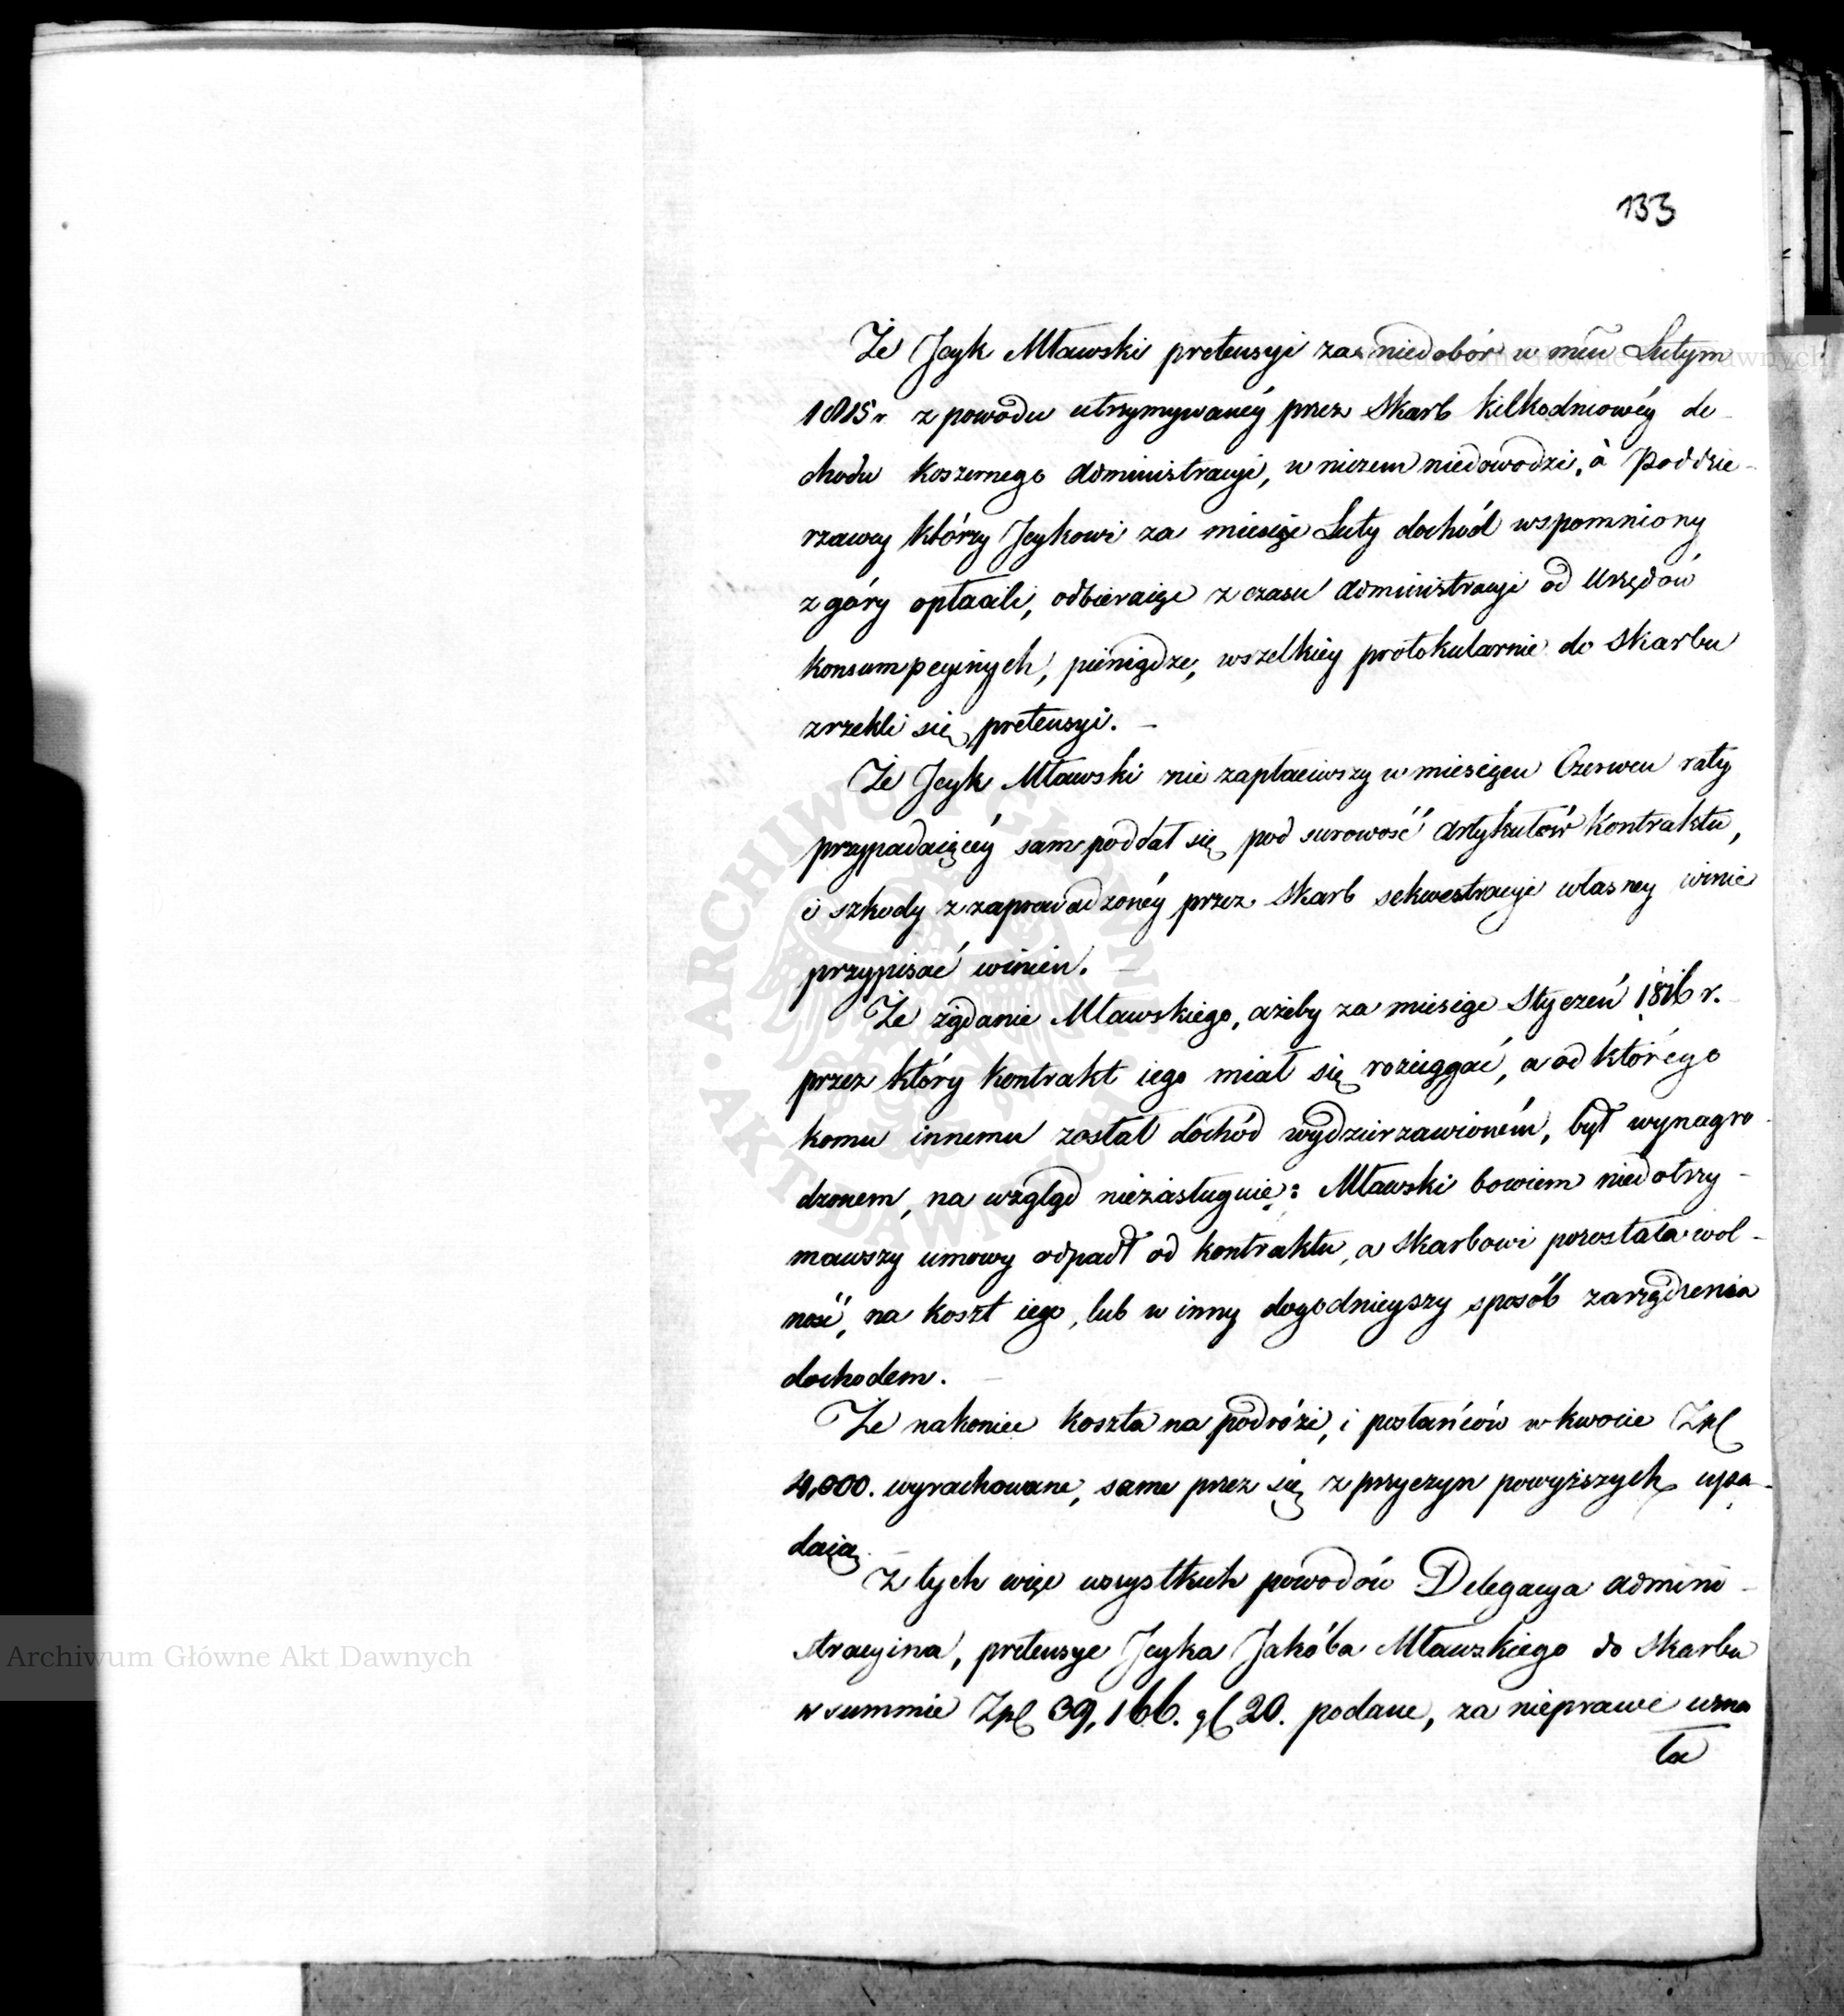 133
Że Jcyk Mławski pretensyi za niedobór w mcu Lutym
1815 r z powodu utrzymywanéy przez Skarb kilkodniowéy do-
chodu koszernego administracyi, w niczem niedowodzi, à Poddzie-
rzawcy którzy Jcykowi za miesiąc Luty dochód wspomniony
z góry opłacili, odbieraiąc z czasu administracyi od Urzędów
konsumpcyinych, pieniądze, wszelkiey protokularnie do Skarbu
zrzekli się pretensyi. –
Że Jcyk Mławski nie zapłaciwszy w miesiącu Czerwcu raty
przypadaiącéy sam poddał się pod surowość Artykułów Kontraktu,
i szkody z zaprowadzonéy przez Skarb sekwestracyi własney winie
przypisać winien. –
Że żądanie Mławskiego, ażeby za miesiąc Styczeń 1816 r.
przez który kontrakt iego miał się rozciągać, a od którego
komu innemu został dochód wydzierzawioném, był wynagro-
dzonem, na wzgląd niezasługuie: Mławski bowiem niedotrzy-
mawszy umowy odpadł od kontraktu, a Skarbowi pozostała wol-
ność, na koszt iego, lub w inny dogodnieyszy sposób zarządzenia
dochodem. –
Że nakoniec koszta na podróże, i posłańców w kwocie Zpł
4,000. wyrachowane, same przez się z przyczyn powyższych upa-
daią.
Z tych więc wszystkich powodów Delegacya admini-
stracyina, pretensye Jcyka Jakóba Mławskiego do Skarbu
w summie Zpł 39,166. gł 20. podane, za nieprawe uzna
ła
Archiwum Główne Akt Dawnych
Archiwum Główne Akt Dawnych
ARCHIWUM GŁÓWNE · AKT DAWNYCH ·